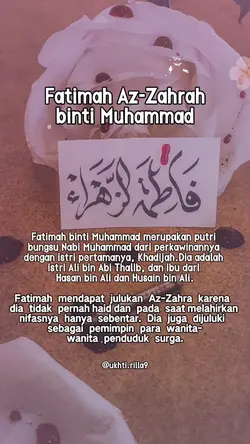 Fatimah Az-Zahrah
binti Muhammad
فَاطِمَةُ الزَّهْرَاءُ
Fatimah binti Muhammad merupakan putri
bungsu Nabi Muhammad dari perkawinannya
dengan istri pertamanya, Khadijah.Dia adalah
istri Ali bin Abi Thalib, dan ibu dari
Hasan bin Ali dan Husain bin Ali.
Fatimah mendapat julukan Az-Zahra karena
dia tidak pernah haid dan pada saat melahirkan
nifasnya hanya sebentar. Dia juga dijuluki
sebagai pemimpin para wanita-
wanita penduduk surga.
@ukhti.rilla9